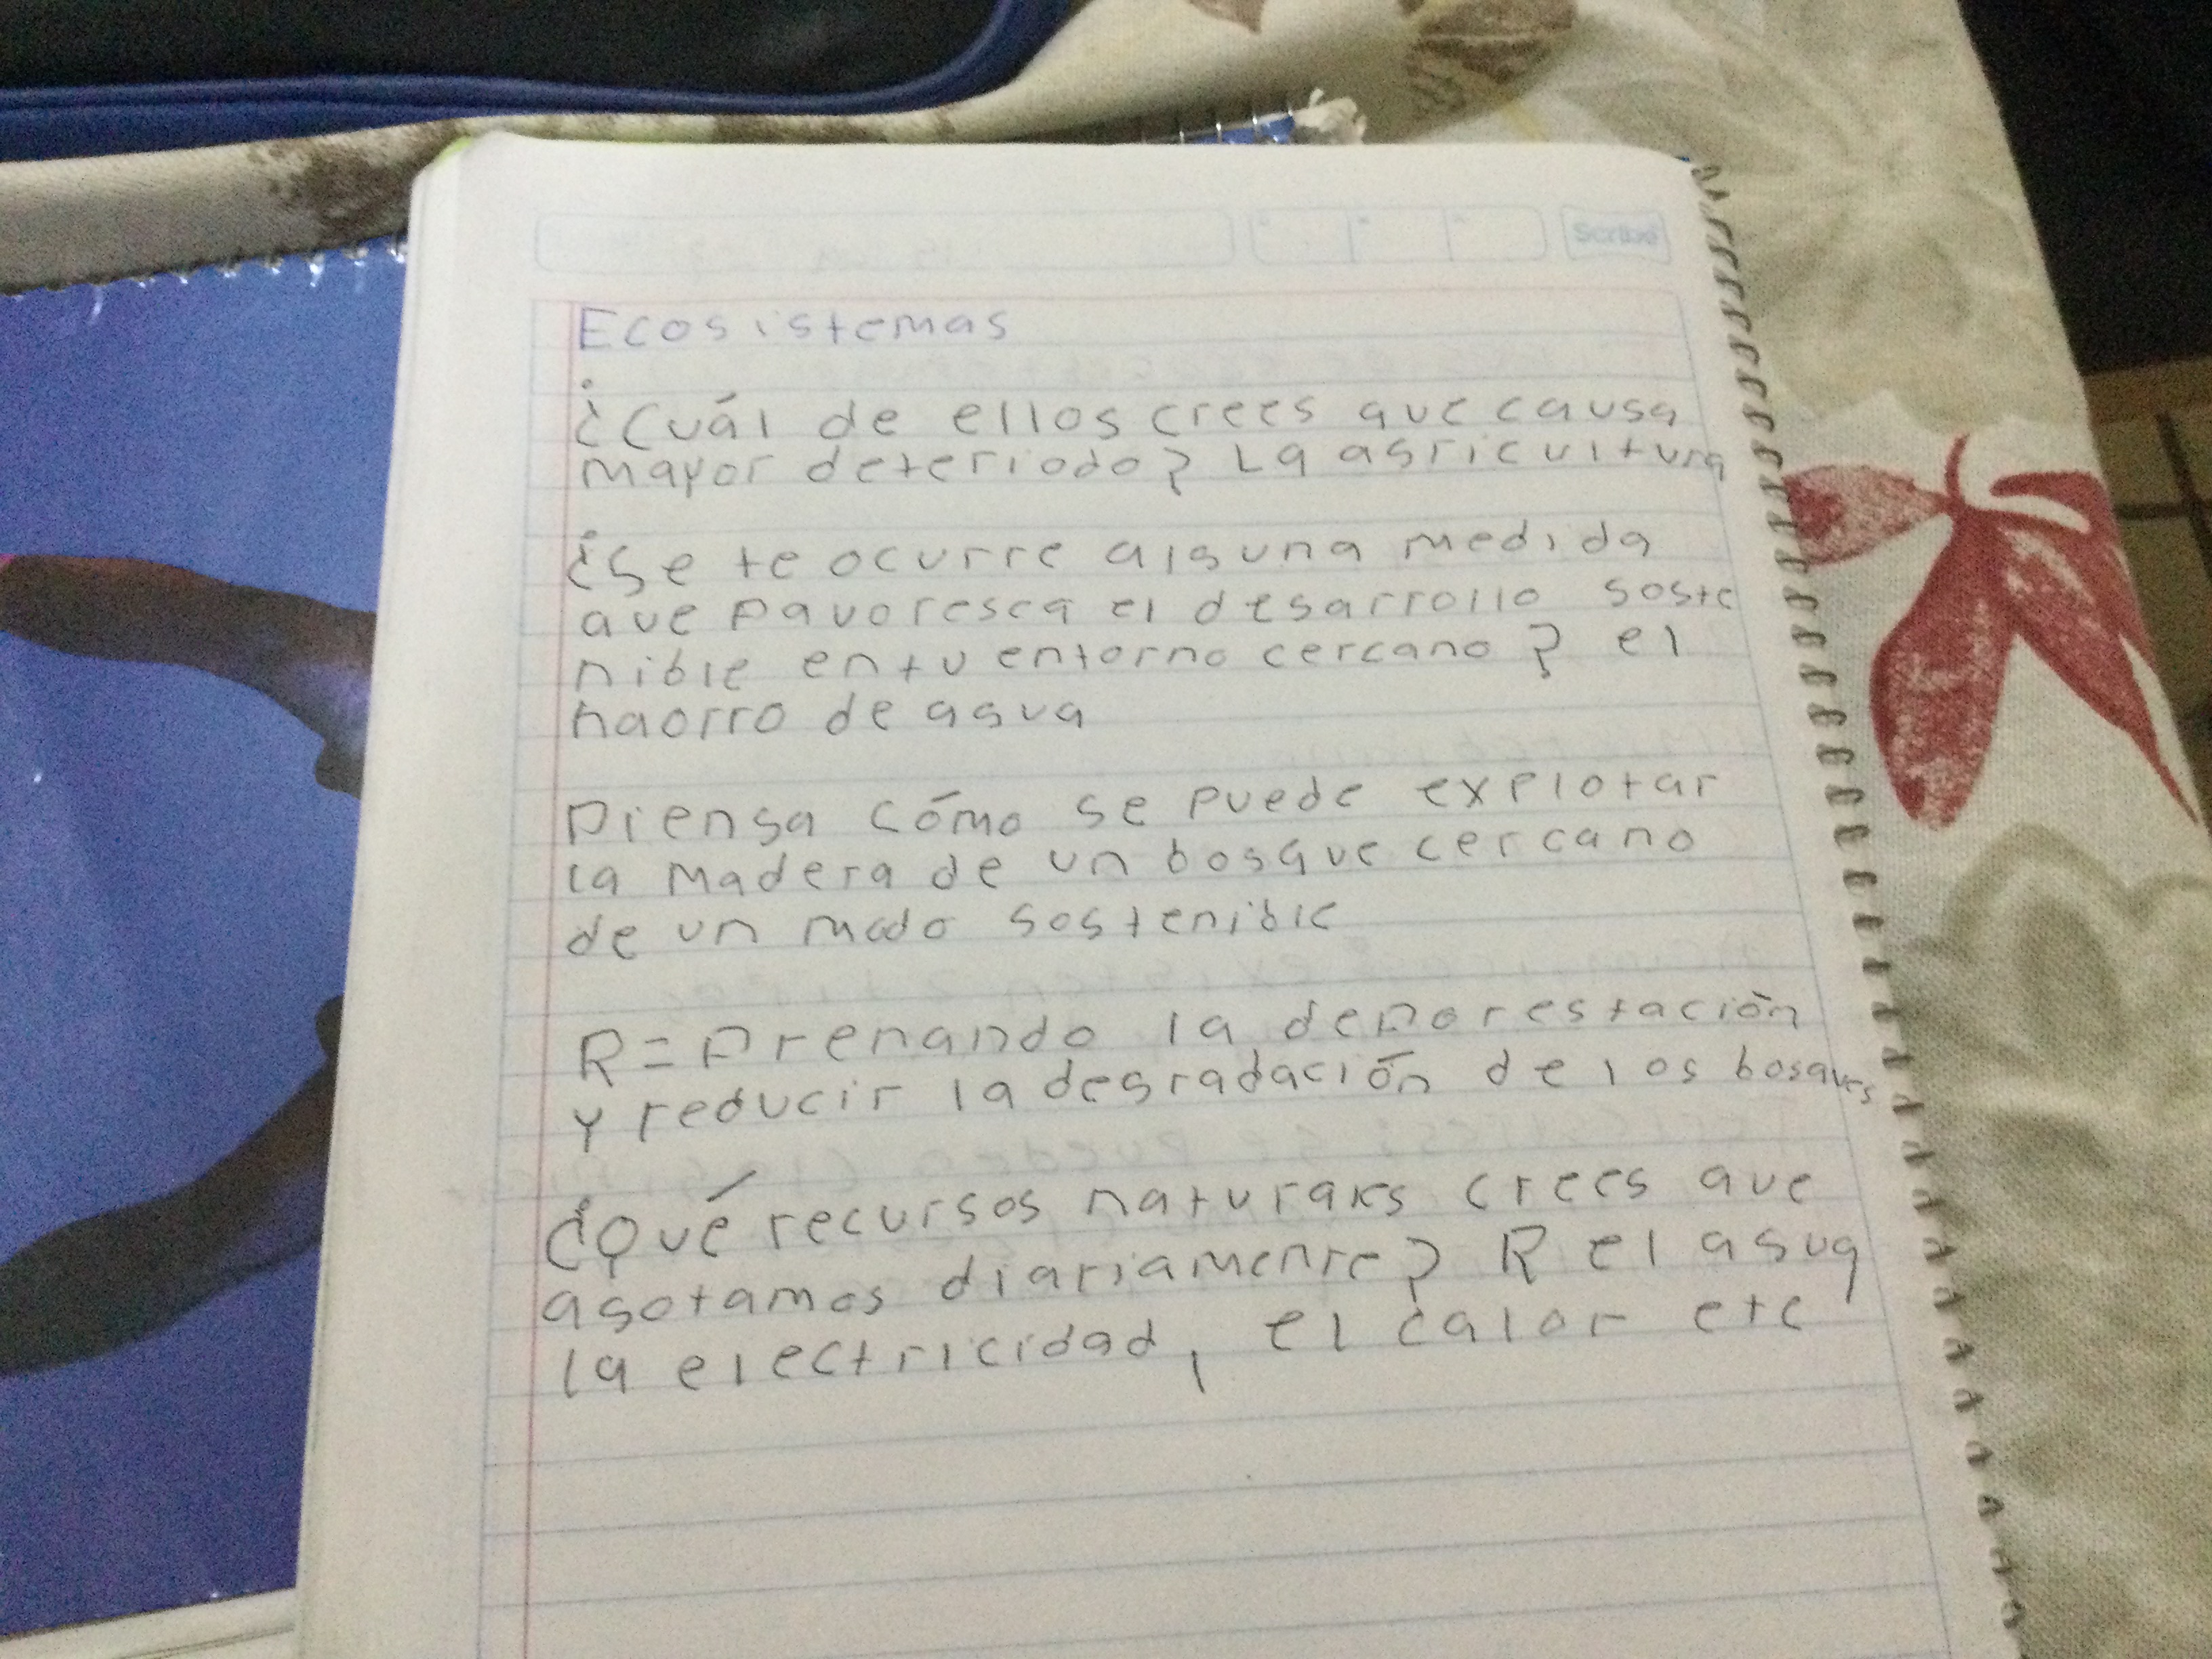 Scribe
Ecosistemas
¿Cuál de ellos crees que causa
mayor deteriodo? La agricultura
¿Se te ocurre alguna medida
que favoresca el desarrollo soste
nible en tu entorno cercano? el
haorro de agua
Piensa cómo se puede explotar
la madera de un bosque cercano
de un modo sostenible
R= Frenando la deforestación
y reducir la degradación de los bosques
¿Qué recursos naturales crees que
agotamos diariamente? R el agua
la electricidad, el calor etc